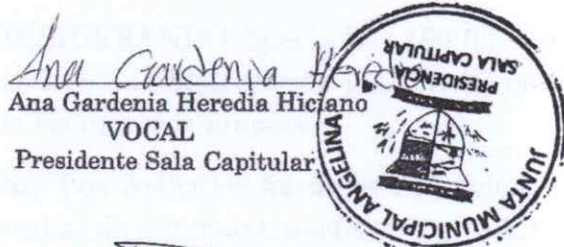 Ana Gardenia Heredia
Ana Gardenia Heredia Hiciano
VOCAL
Presidente Sala Capitular
JUNTA MUNICIPAL ANGELINA
PRESIDENCIA
SALA CAPITULAR